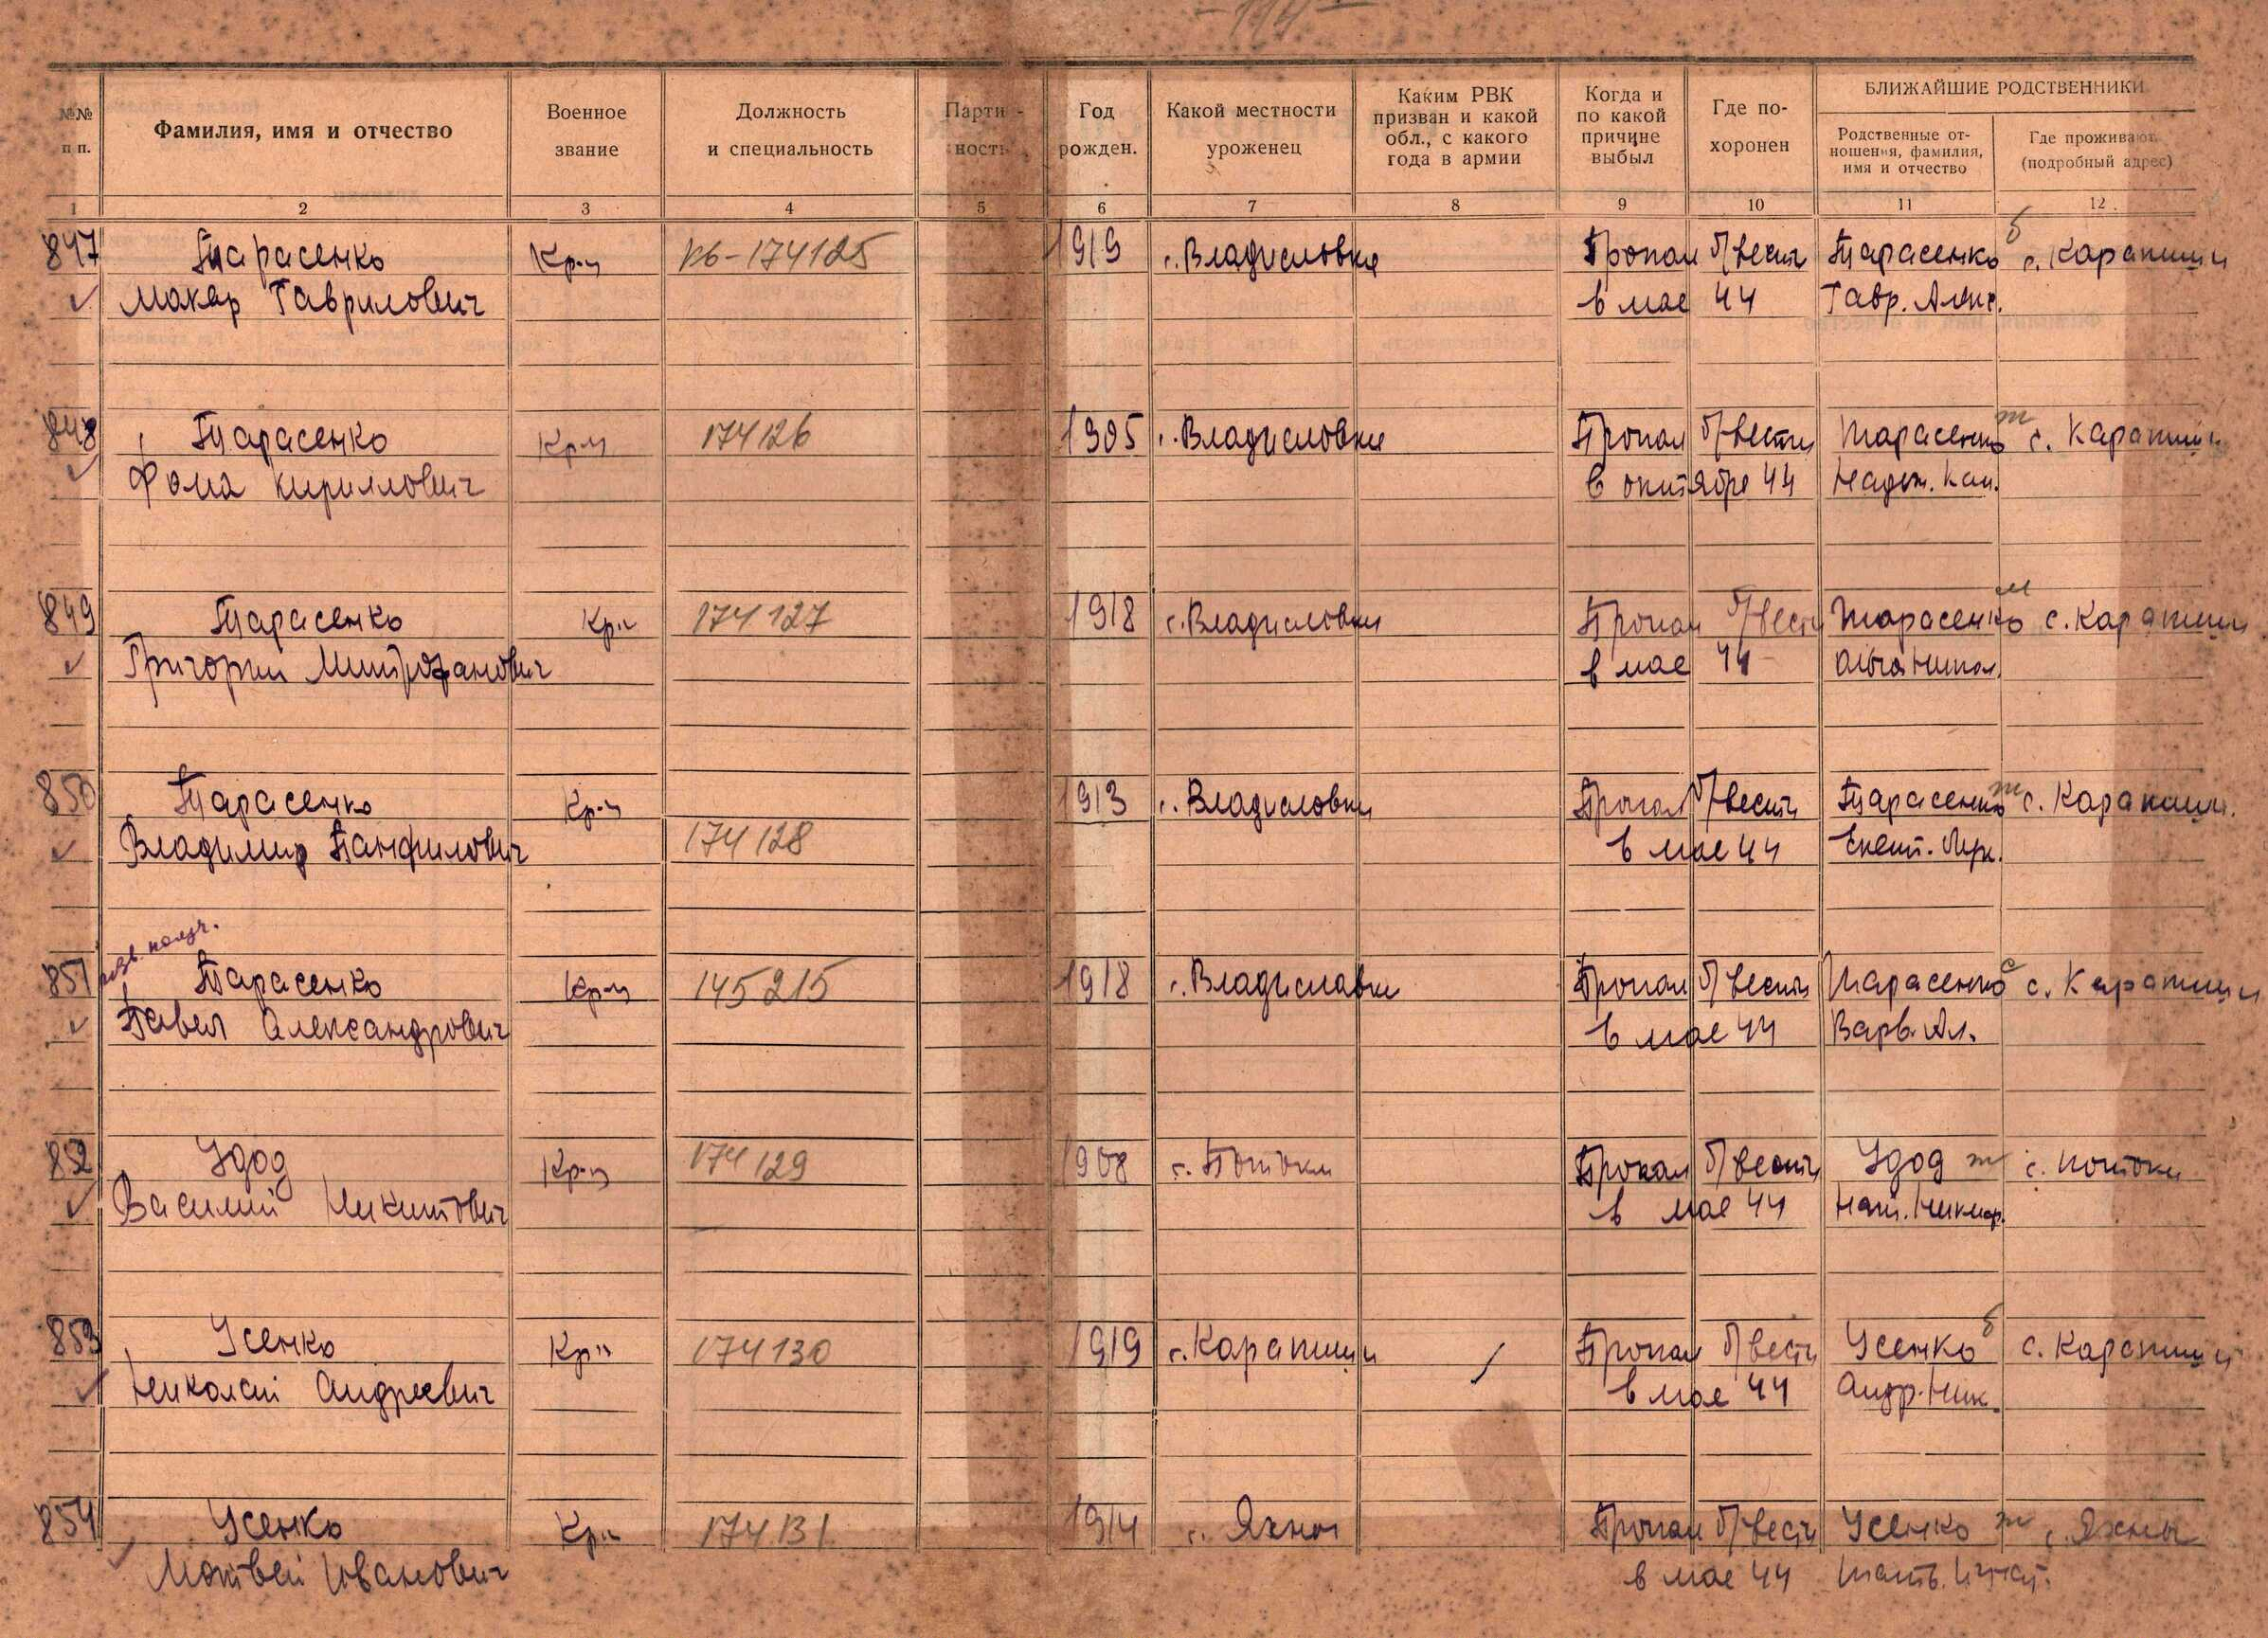 -114-
№№ п п.
Фамилия, имя и отчество
Военное звание
Должность и специальность
Парти-ность
Год рожден.
Какой местности уроженец
Каким РВК призван и какой обл., с какого года в армии
Когда и по какой причине выбыл
Где по-хоронен
БЛИЖАЙШИЕ РОДСТВЕННИКИ
Родственные от-ношения, фамилия, имя и отчество
Где проживают (подробный адрес)
1 2 3 4 5 6 7 8 9 10 11 12
847 Тарасенко Кр-ц 174125 1919 с. Владиславка Пропал б/вести Тарасенко б с. Карапиши
Макар Гаврилович в мае 44 Гавр. Алекс.
848 Тарасенко Кр-ц 174126 1905 с. Владиславка Пропал б/вести Тарасенко ж с. Карапиши
Фома Кириллович в октябре 44 Надеж.
849 Тарасенко Кр-ц 174127 1918 с. Владиславка Пропал б/вести Тарасенко м с. Карапиши
Григорий Митрофанович в мае 44
850 Тарасенко Кр-ц 1913 с. Владиславка Пропал б/вести Тарасенко ж с. Карапиши
Владимир Панфилович 174128 в мае 44
851 Тарасенко Кр-ц 145215 1918 с. Владиславка Пропал б/вести Тарасенко с с. Карапиши
Павел Александрович в мае 44 Варв. Ал.
852 Удод Кр-ц 174129 1908 с. Потоки Пропал б/вести Удод ж с. Потоки
Василий Никитович в мае 44 Нат.
853 Усенко Кр-ц 174130 1919 с. Карапиши Пропал б/вести Усенко б с. Карапиши
Николай Андреевич в мае 44 Андр. Ник.
854 Усенко Кр-ц 174131 1914 с. Яхны Пропал б/вести Усенко ж с. Яхны
Матвей Иванович в мае 44